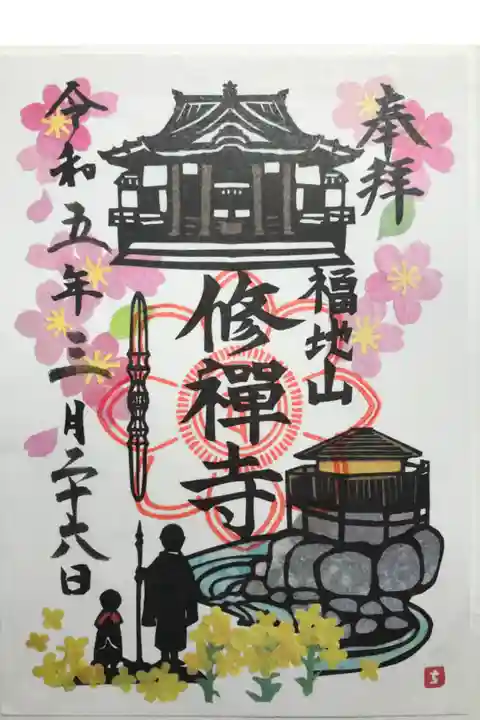 奉拝
福地山
修禪寺
令和五年三月二十六日